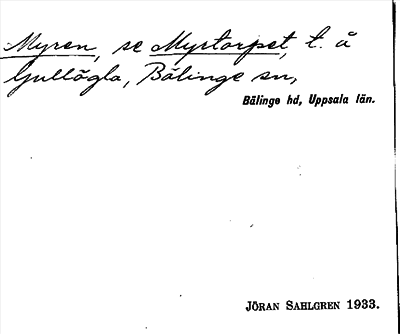 Myren, se Myrtorpet, t. å
Gullögla, Bälinge sn,
Bälinge hd, Uppsala län.
JÖRAN SAHLGREN 1933.